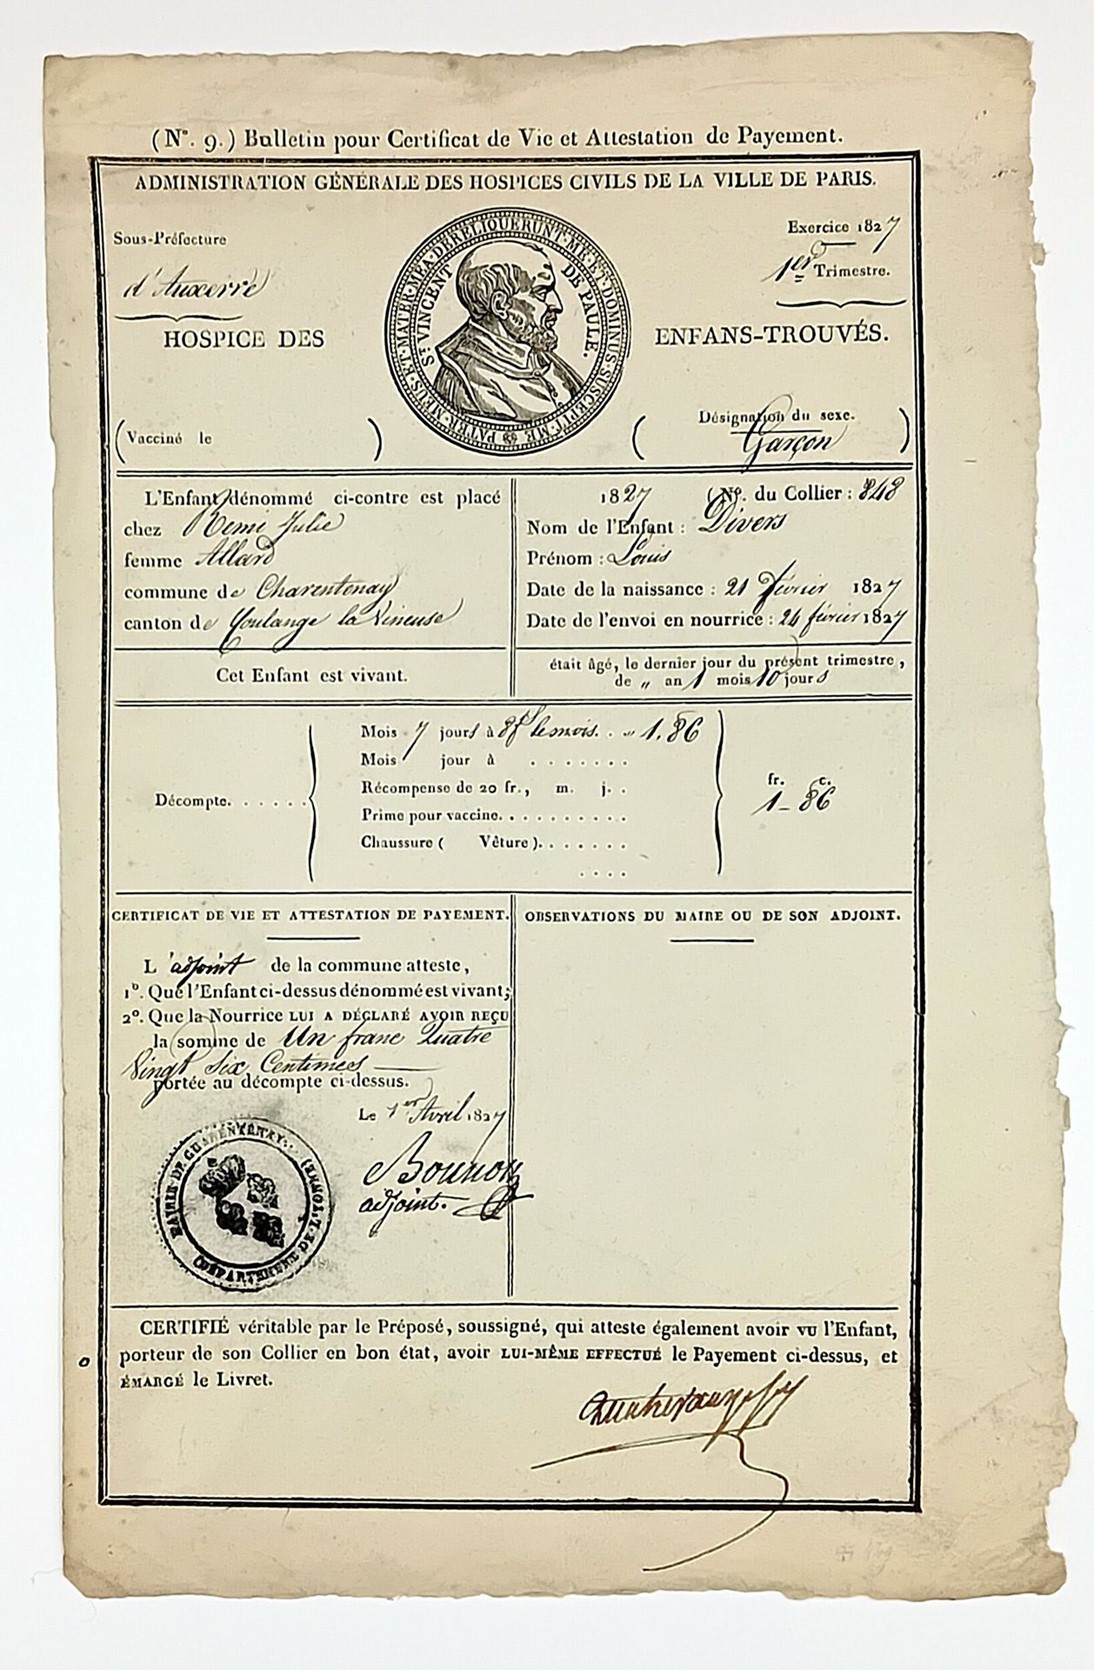 (N°. 9.) Bulletin pour Certificat de Vie et Attestation de Payement.
ADMINISTRATION GÉNÉRALE DES HOSPICES CIVILS DE LA VILLE DE PARIS.
Sous-Préfecture
d'Auxerre
Exercice 1827
1er Trimestre.
PATER·MEUS·ET·MATER·MEA·DERELIQUERUNT·ME·ET·DOMINUS·SUSCEPIT·ME
ST VINCENT DE PAULE.
HOSPICE DES ENFANS-TROUVÉS.
(Vacciné le )
( Désignation du sexe. )
Garçon
L'Enfant dénommé ci-contre est placé
chez Remi Julie
femme Allard
commune de Charentenay
canton de Coulange la Vineuse
Cet Enfant est vivant.
1827 (N°. du Collier : 848
Nom de l'Enfant : Divers
Prénom : Louis
Date de la naissance : 21 février 1827
Date de l'envoi en nourrice : 24 février 1827
était âgé, le dernier jour du présent trimestre,
de „ an 1 mois 10 jours
Décompte. . . . . .
Mois 7 jours à 8f le mois. . „ 1. 86
Mois jour à . . . . . . .
Récompense de 20 fr., m. j. .
Prime pour vaccine. . . . . . . . . .
Chaussure ( Vêture ). . . . . . .
. . . .
fr. c.
1 – 86
CERTIFICAT DE VIE ET ATTESTATION DE PAYEMENT.
L'adjoint de la commune atteste,
1°. Que l'Enfant ci-dessus dénommé est vivant;
2°. Que la Nourrice LUI A DÉCLARÉ AVOIR REÇU
la somme de Un franc Quatre
Vingt Six Centimes
portée au décompte ci-dessus.
Le 1er Avril 1827
adjoint.
MAIRIE DE CHARENTENAY. DÉPARTEMENT DE L'YONNE
OBSERVATIONS DU MAIRE OU DE SON ADJOINT.
CERTIFIÉ véritable par le Préposé, soussigné, qui atteste également avoir vu l'Enfant,
porteur de son Collier en bon état, avoir LUI-MÊME EFFECTUÉ le Payement ci-dessus, et
ÉMARGÉ le Livret.